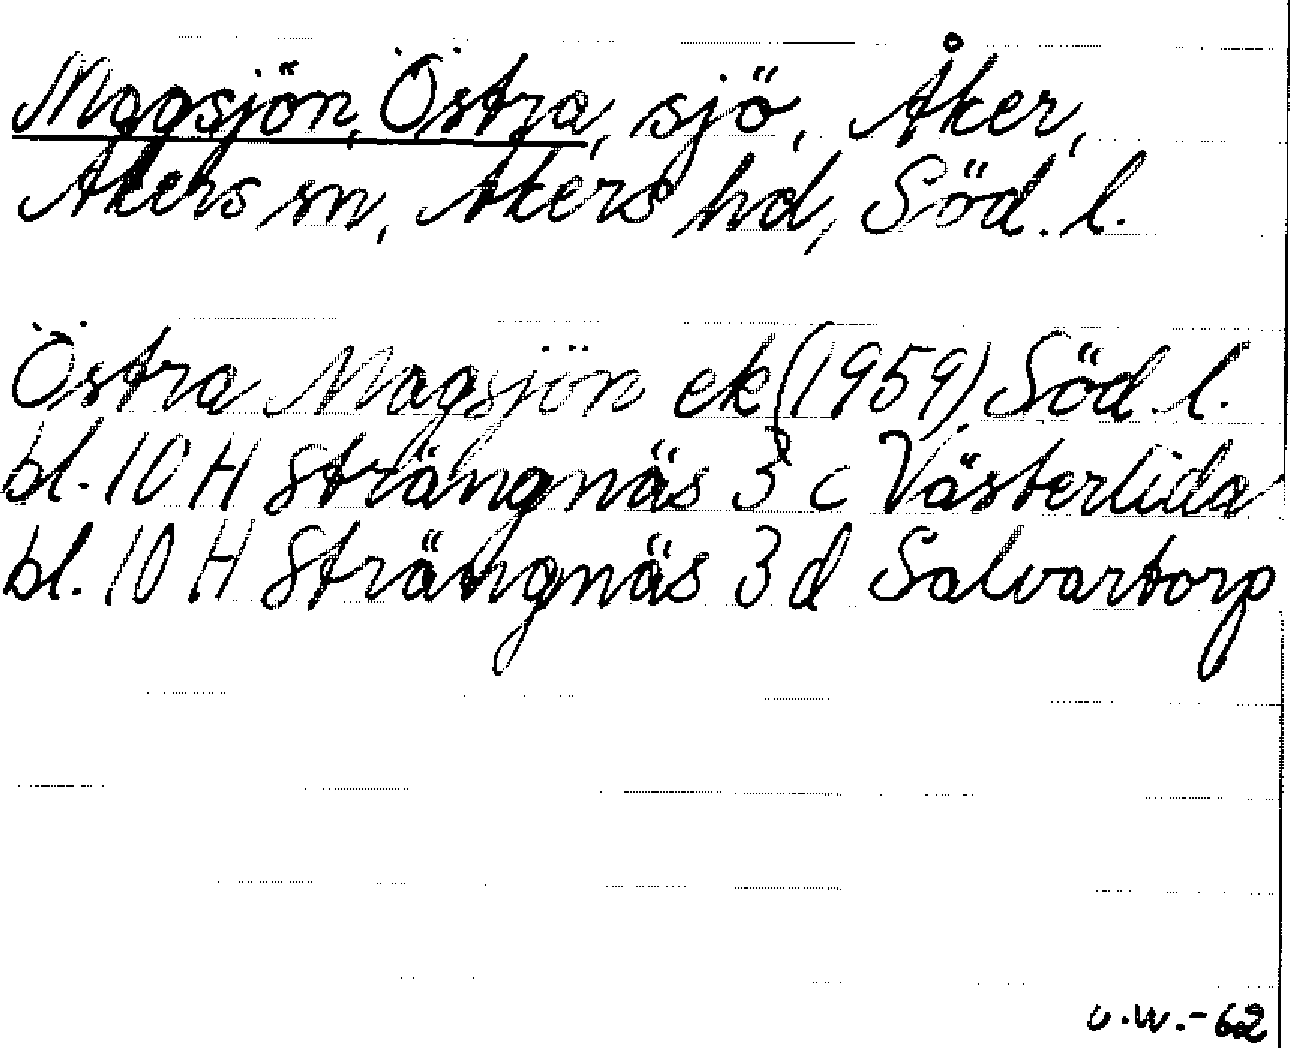 Magsjön, Östra, sjö, Åker,
Åkers sn, Åkers hd, Söd. l.
Östra Magsjön ek (1959) Söd. l.
bl. 10 H Strängnäs 3 c Västerlida
bl. 10 H Strängnäs 3 d Salvartorp
U.W.-62